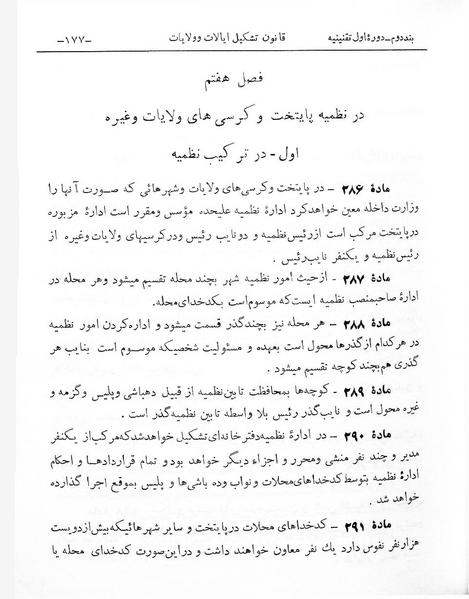 بند دوم ـ دورۀ اول تقنینیه قانون تشکیل ایالات وولایات ـ۱۷۷ـ
فصل هفتم
در نظمیه پایتخت وکرسی های ولایات وغیره
اول - در ترکیب نظمیه
مادۀ ۲۸۶ ـ در پایتخت وکرسی‌های ولایات وشهرهائی که صورت آنها را
وزارت داخله معین خواهدکرد ادارۀ نظمیه علیحده مؤسس ومقرر است ادارۀ مزبوره
درپایتخت مرکب است ازرئیس نظمیه و دونایب رئیس ودرکرسیهای ولایات وغیره از
رئیس نظمیه و یکنفر نایب رئیس .
مادۀ ۲۸۷ ـ ازحیث امور نظمیه شهر بچند محله تقسیم میشود وهر محله در
ادارۀ صاحبمنصب نظمیه ایست که موسوم است بکدخدای محله.
مادۀ ۲۸۸ ـ هر محله نیز بچندگذر قسمت میشود و اداره کردن امور نظمیه
در هرکدام ازگذرها محول است بعهده و مسئولیت شخصیکه موسوم است بنایب هر
گذری هم بچند کوچه تقسیم میشود .
مادۀ ۲۸۹ ـ کوچه‌ها بمحافظت تابین نظمیه از قبیل دهباشی وپلیس وگزمه و
غیره محول است و نایب گذر رئیس بلا واسطه تابین نظمیه گذر است .
مادۀ ۲۹۰ ـ در ادارۀ نظمیه دفترخانه‌ای تشکیل خواهد شد که مرکب از یکنفر
مدیر و چند نفر منشی ومحرر و اجزاء دیگر خواهد بود و تمام قراردادها و احکام
ادارۀ نظمیه بتوسط کدخداهای محلات و نواب وده باشی‌ها و پلیس بموقع اجرا گذارده
خواهد شد .
مادۀ ۲۹۱ ـ کدخداهای محلات درپایتخت و سایر شهر هائیکه بیش از دویست
هزار نفر نفوس دارد یك نفر معاون خواهند داشت و دراین صورت کدخدای محله یا